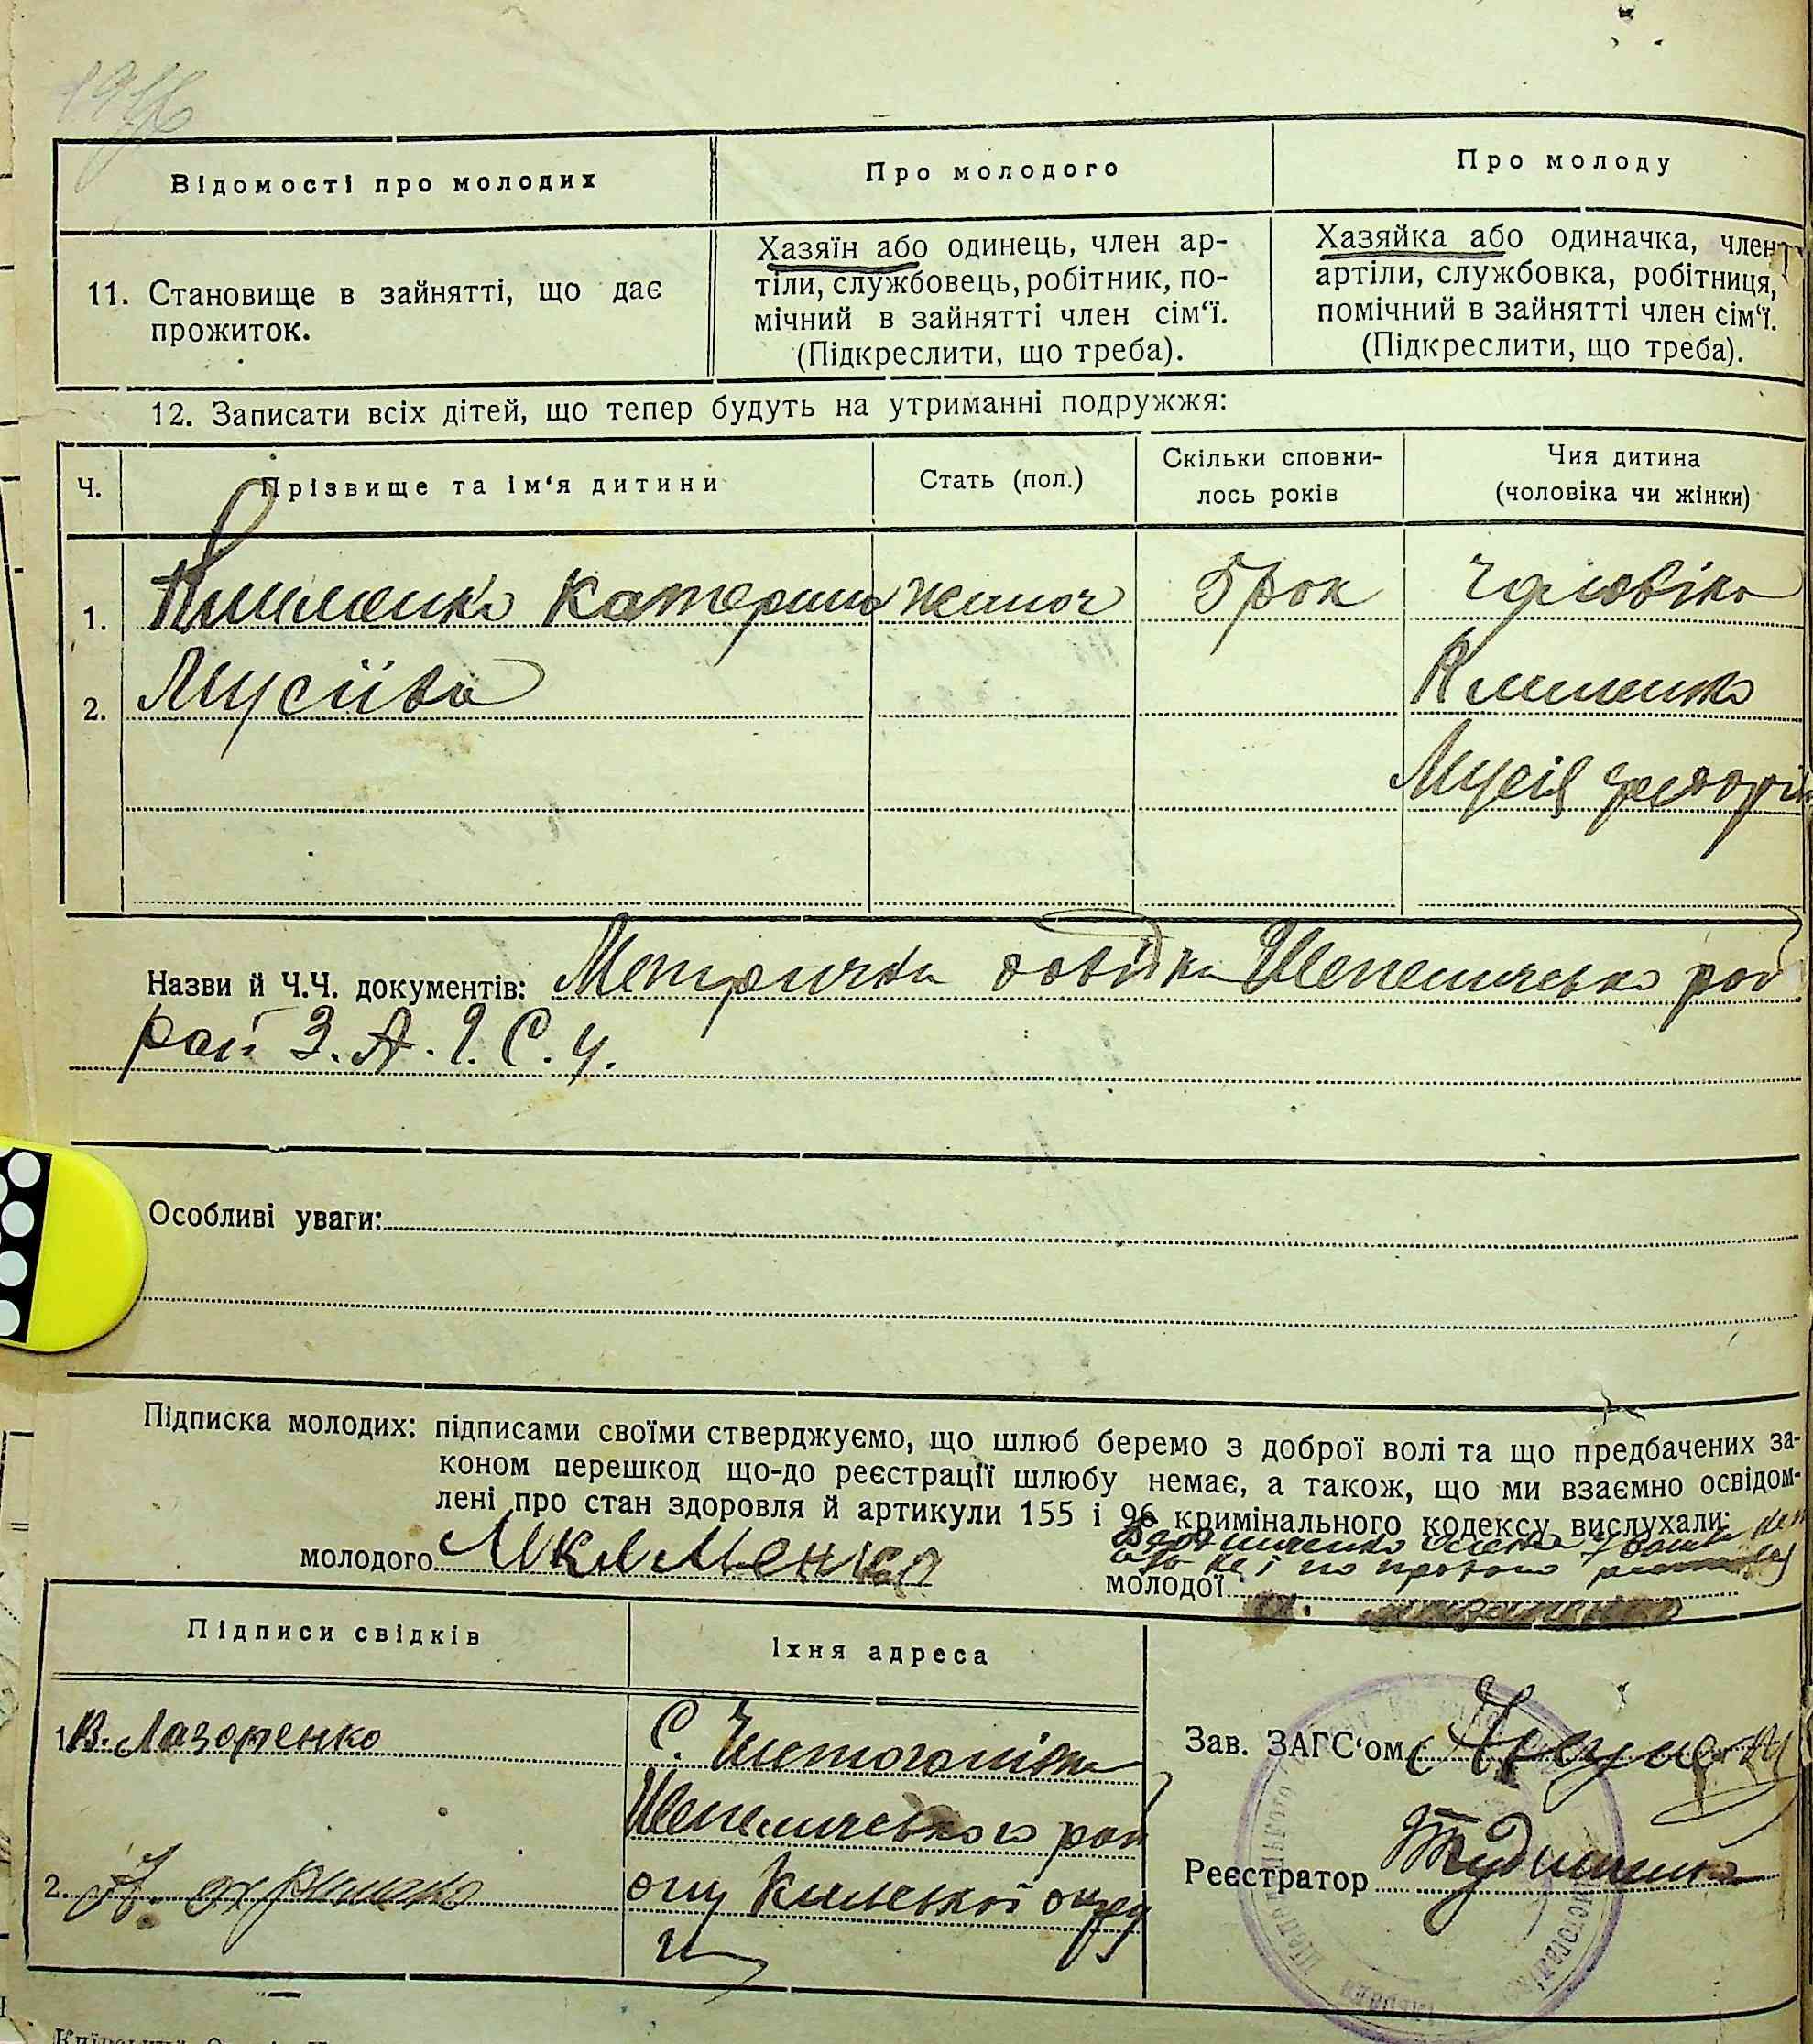 Відомості про молодих
Про молодого
Про молоду
11. Становище в зайнятті, що дає
прожиток.
Хазяїн або одинець, член ар-
тіли, службовець, робітник, по-
мічний в зайнятті член сім‘ї.
(Підкреслити, що треба).
Хазяйка або одиначка, член
артіли, службовка, робітниця,
помічний в зайнятті член сім‘ї.
(Підкреслити, що треба).
12. Записати всіх дітей, що тепер будуть на утриманні подружжя:
Ч.
Прізвище та ім‘я дитини
Стать (пол.)
Скільки сповни-
лось років
Чия дитина
(чоловіка чи жінки)
1. Клименко Катерина жіноч 5 рок чоловіка
2. Мусіївна Клименко
Мусія
Назви й Ч.Ч. документів: Метрична довідка Шепелицько
рай З.А.Г.С.у.
Особливі уваги:
Підписка молодих: підписами своїми стверджуємо, що шлюб беремо з доброї волі та що предбачених за-
коном перешкод що-до реєстрації шлюбу немає, а також, що ми взаємно освідом-
лені про стан здоровля й артикули 155 і 96 кримінального кодексу вислухали:
молодого М Клменко
молодої
Підписи свідків
Їхня адреса
1. В. Лазоренко
С. Чистогалівка
Шепелицького рай
2.
ону Київської округ
и
Зав. ЗАГС‘ом
Реєстратор